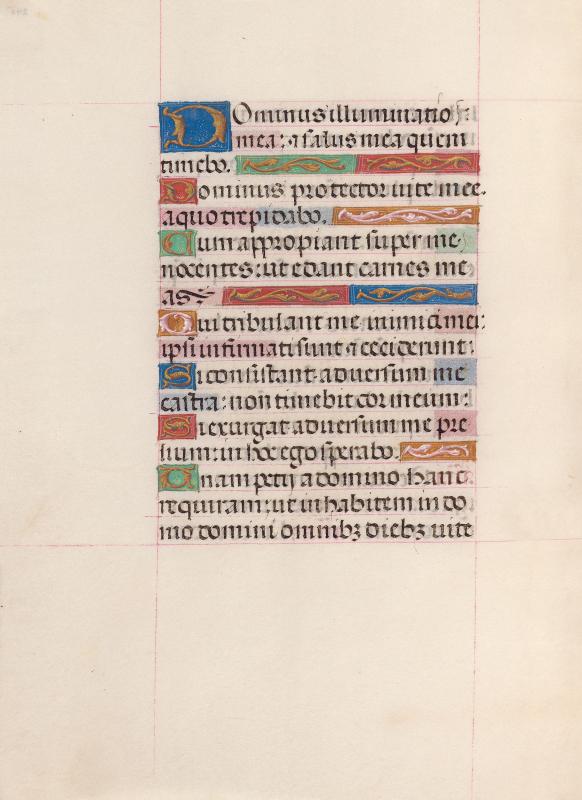 Dominus illuminatio
mea: ⁊ salus mea quem
timebo.
Dominus protector uite mee.
a quo trepidabo.
Cum appropiant super me
nocentes: ut edant carnes me
as
Qui tribulant me inimici mei:
ipsi infirmati sunt ⁊ ceciderunt:
Si consistant aduersum me
castra: non timebit cor meum:
Si exurgat aduersum me pre
lium: in hoc ego sperabo.
Unam petij a domino hanc
requiram: ut inhabitem in do
mo domini omnibꝫ diebꝫ uite